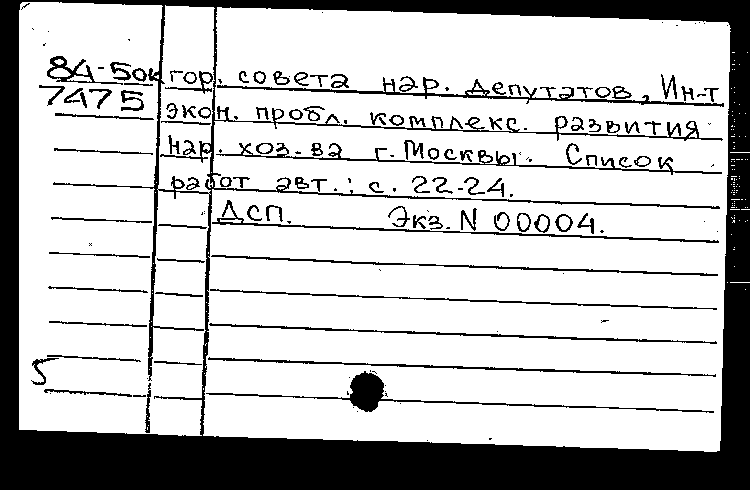 84-5ок гор. совета нар. депутатов, Ин-т
7475 экон. пробл. комплекс. развития
нар. хоз-ва г. Москвы. Список
работ авт.: с. 22-24.
ДСП. Экз. N 00004.
5